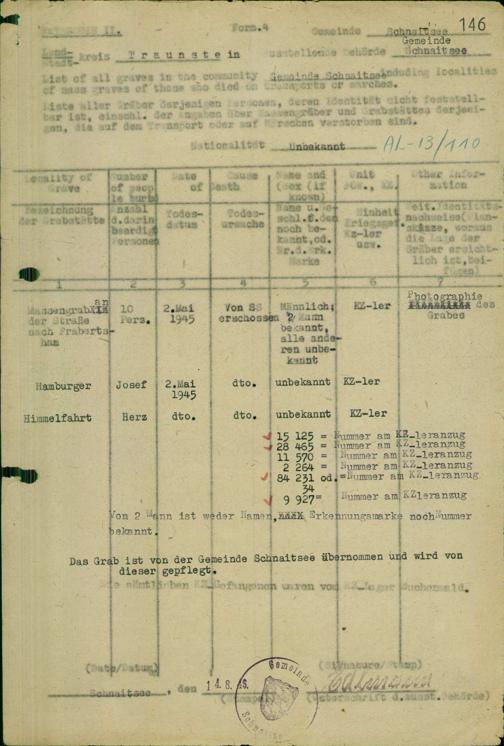 146
Form.4
Gemeinde Schnaitsee
Land-
Stadt-kreis Traunstein ausstellende Behörde Gemeinde Schnaitsee
List of all graves in the community Gemeinde Schnaitsee including localities
of mass graves of those who died on transports or marches.
Liste aller Gräber derjenigen Personen, deren Identität nicht feststell-
bar ist, einschl. der angaben über Massengräber und Grabstätten derjeni-
gen, die auf dem Transport oder auf Märschen verstorben sind.
Nationalität Unbekannt
AL-13/110
Locality of Grave
Number of peop le buri
Date of
Cause Death
Name and (sex (if known)
Unit POW., KZ.
Other Infor- mation
Bezeichnung der Grabstätte
Anzahl d.darin beerdigt Personen
Todes- datum
Todes- ursache
Name u. schl.f.den noch be- kannt,od. Nr.d.Erk. Marke
Einheit Kriegsgef Kz-ler usw.
1 2 3 4 5 6 7
Massengrab an
der Straße
nach Frabertsham
10 Perz.
2.Mai 1945
Von SS erschossen
Männlich; 2 Mann bekannt, alle ande- ren unbe- kannt
KZ-ler
Photographie des Grabes
Hamburger Josef 2.Mai 1945 dto. unbekannt KZ-ler
Himmelfahrt Herz dto. dto. unbekannt KZ-ler
15 125 = Nummer am KZ-leranzug
28 465 = Nummer am KZ-leranzug
11 570 = Nummer am KZ-leranzug
2 264 = Nummer am KZ-leranzug
84 231 od.= Nummer am KZ-leranzug
34
9 927= Nummer am KZleranzug
Von 2 Mann ist weder Namen, Erkennungsmarke noch Nummer
bekannt.
Das Grab ist von der Gemeinde Schnaitsee übernommen und wird von
dieser gepflegt.
Die sämtlichen KZ-Gefangenen waren vom KZ-Lager Buchenwald.
(Date/Datum)
(Signature/Stamp)
Schnaitsee, den 14.8.46.
(Stempel)
(Unterschrift d.ausst.Behörde)
Gemeinde
Schnaitsee